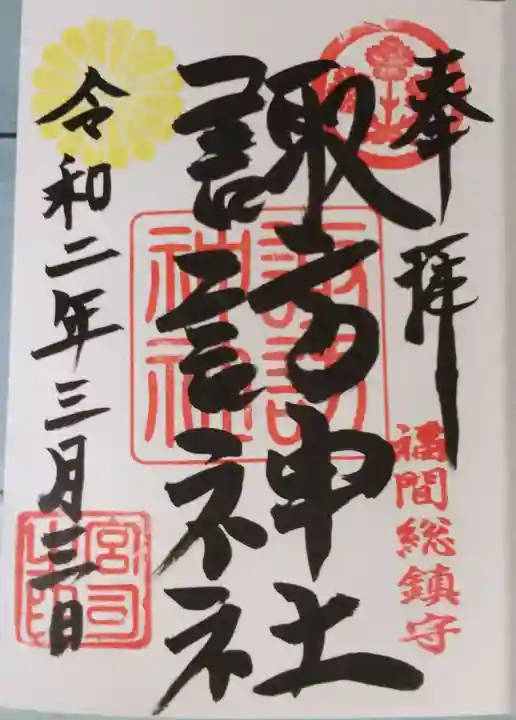 奉拝
福間総鎮守
諏訪神社
諏訪
神社
令和二年三月三日
宮司
之印